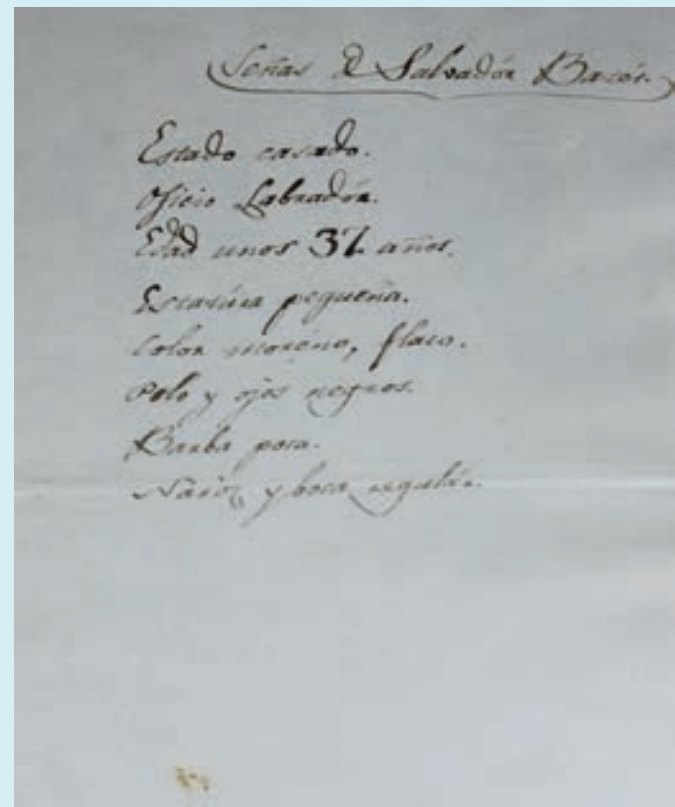 Señas d Salvadór Bacór.
Estado casado.
Oficio Labradór.
Edad unos 37 años.
Estatúra pequeña.
Color moréno, flaco.
Pelo y ojos negros.
Barba poca.
Nariz y boca regulár.